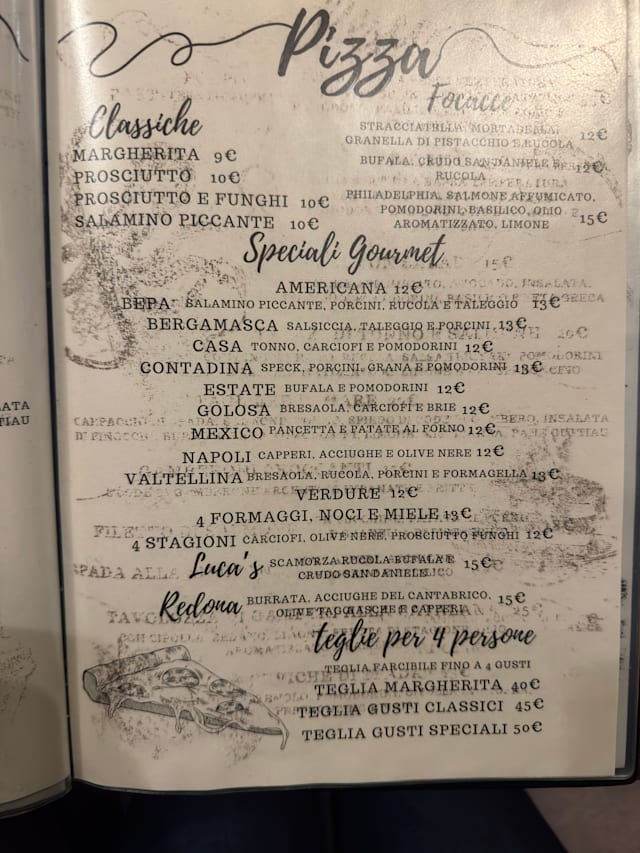 Pizza
Classiche
MARGHERITA 9€
PROSCIUTTO 10€
PROSCIUTTO E FUNGHI 10€
SALAMINO PICCANTE 10€
Focacce
STRACCIATELLA, MORTADELLA,
GRANELLA DI PISTACCHIO E RUCOLA 12€
BUFALA, CRUDO SAN DANIELE E
RUCOLA 12€
PHILADELPHIA, SALMONE AFFUMICATO,
POMODORINI, BASILICO, OLIO
AROMATIZZATO, LIMONE 15€
Speciali Gourmet
AMERICANA 12€
BEPA' SALAMINO PICCANTE, PORCINI, RUCOLA E TALEGGIO 13€
BERGAMASCA SALSICCIA, TALEGGIO E PORCINI 13€
CASA TONNO, CARCIOFI E POMODORINI 12€
CONTADINA SPECK, PORCINI, GRANA E POMODORINI 13€
ESTATE BUFALA E POMODORINI 12€
GOLOSA BRESAOLA, CARCIOFI E BRIE 12€
MEXICO PANCETTA E PATATE AL FORNO 12€
NAPOLI CAPPERI, ACCIUGHE E OLIVE NERE 12€
VALTELLINA BRESAOLA, RUCOLA, PORCINI E FORMAGELLA 13€
VERDURE 12€
4 FORMAGGI, NOCI E MIELE 13€
4 STAGIONI CARCIOFI, OLIVE NERE, PROSCIUTTO FUNGHI 12€
Luca's SCAMORZA RUCOLA BUFALA E
CRUDO SAN DANIELE 15€
Redona BURRATA, ACCIUGHE DEL CANTABRICO,
OLIVE TAGGIASCHE E CAPPERI 15€
teglie per 4 persone
TEGLIA FARCIBILE FINO A 4 GUSTI
TEGLIA MARGHERITA 40€
TEGLIA GUSTI CLASSICI 45€
TEGLIA GUSTI SPECIALI 50€